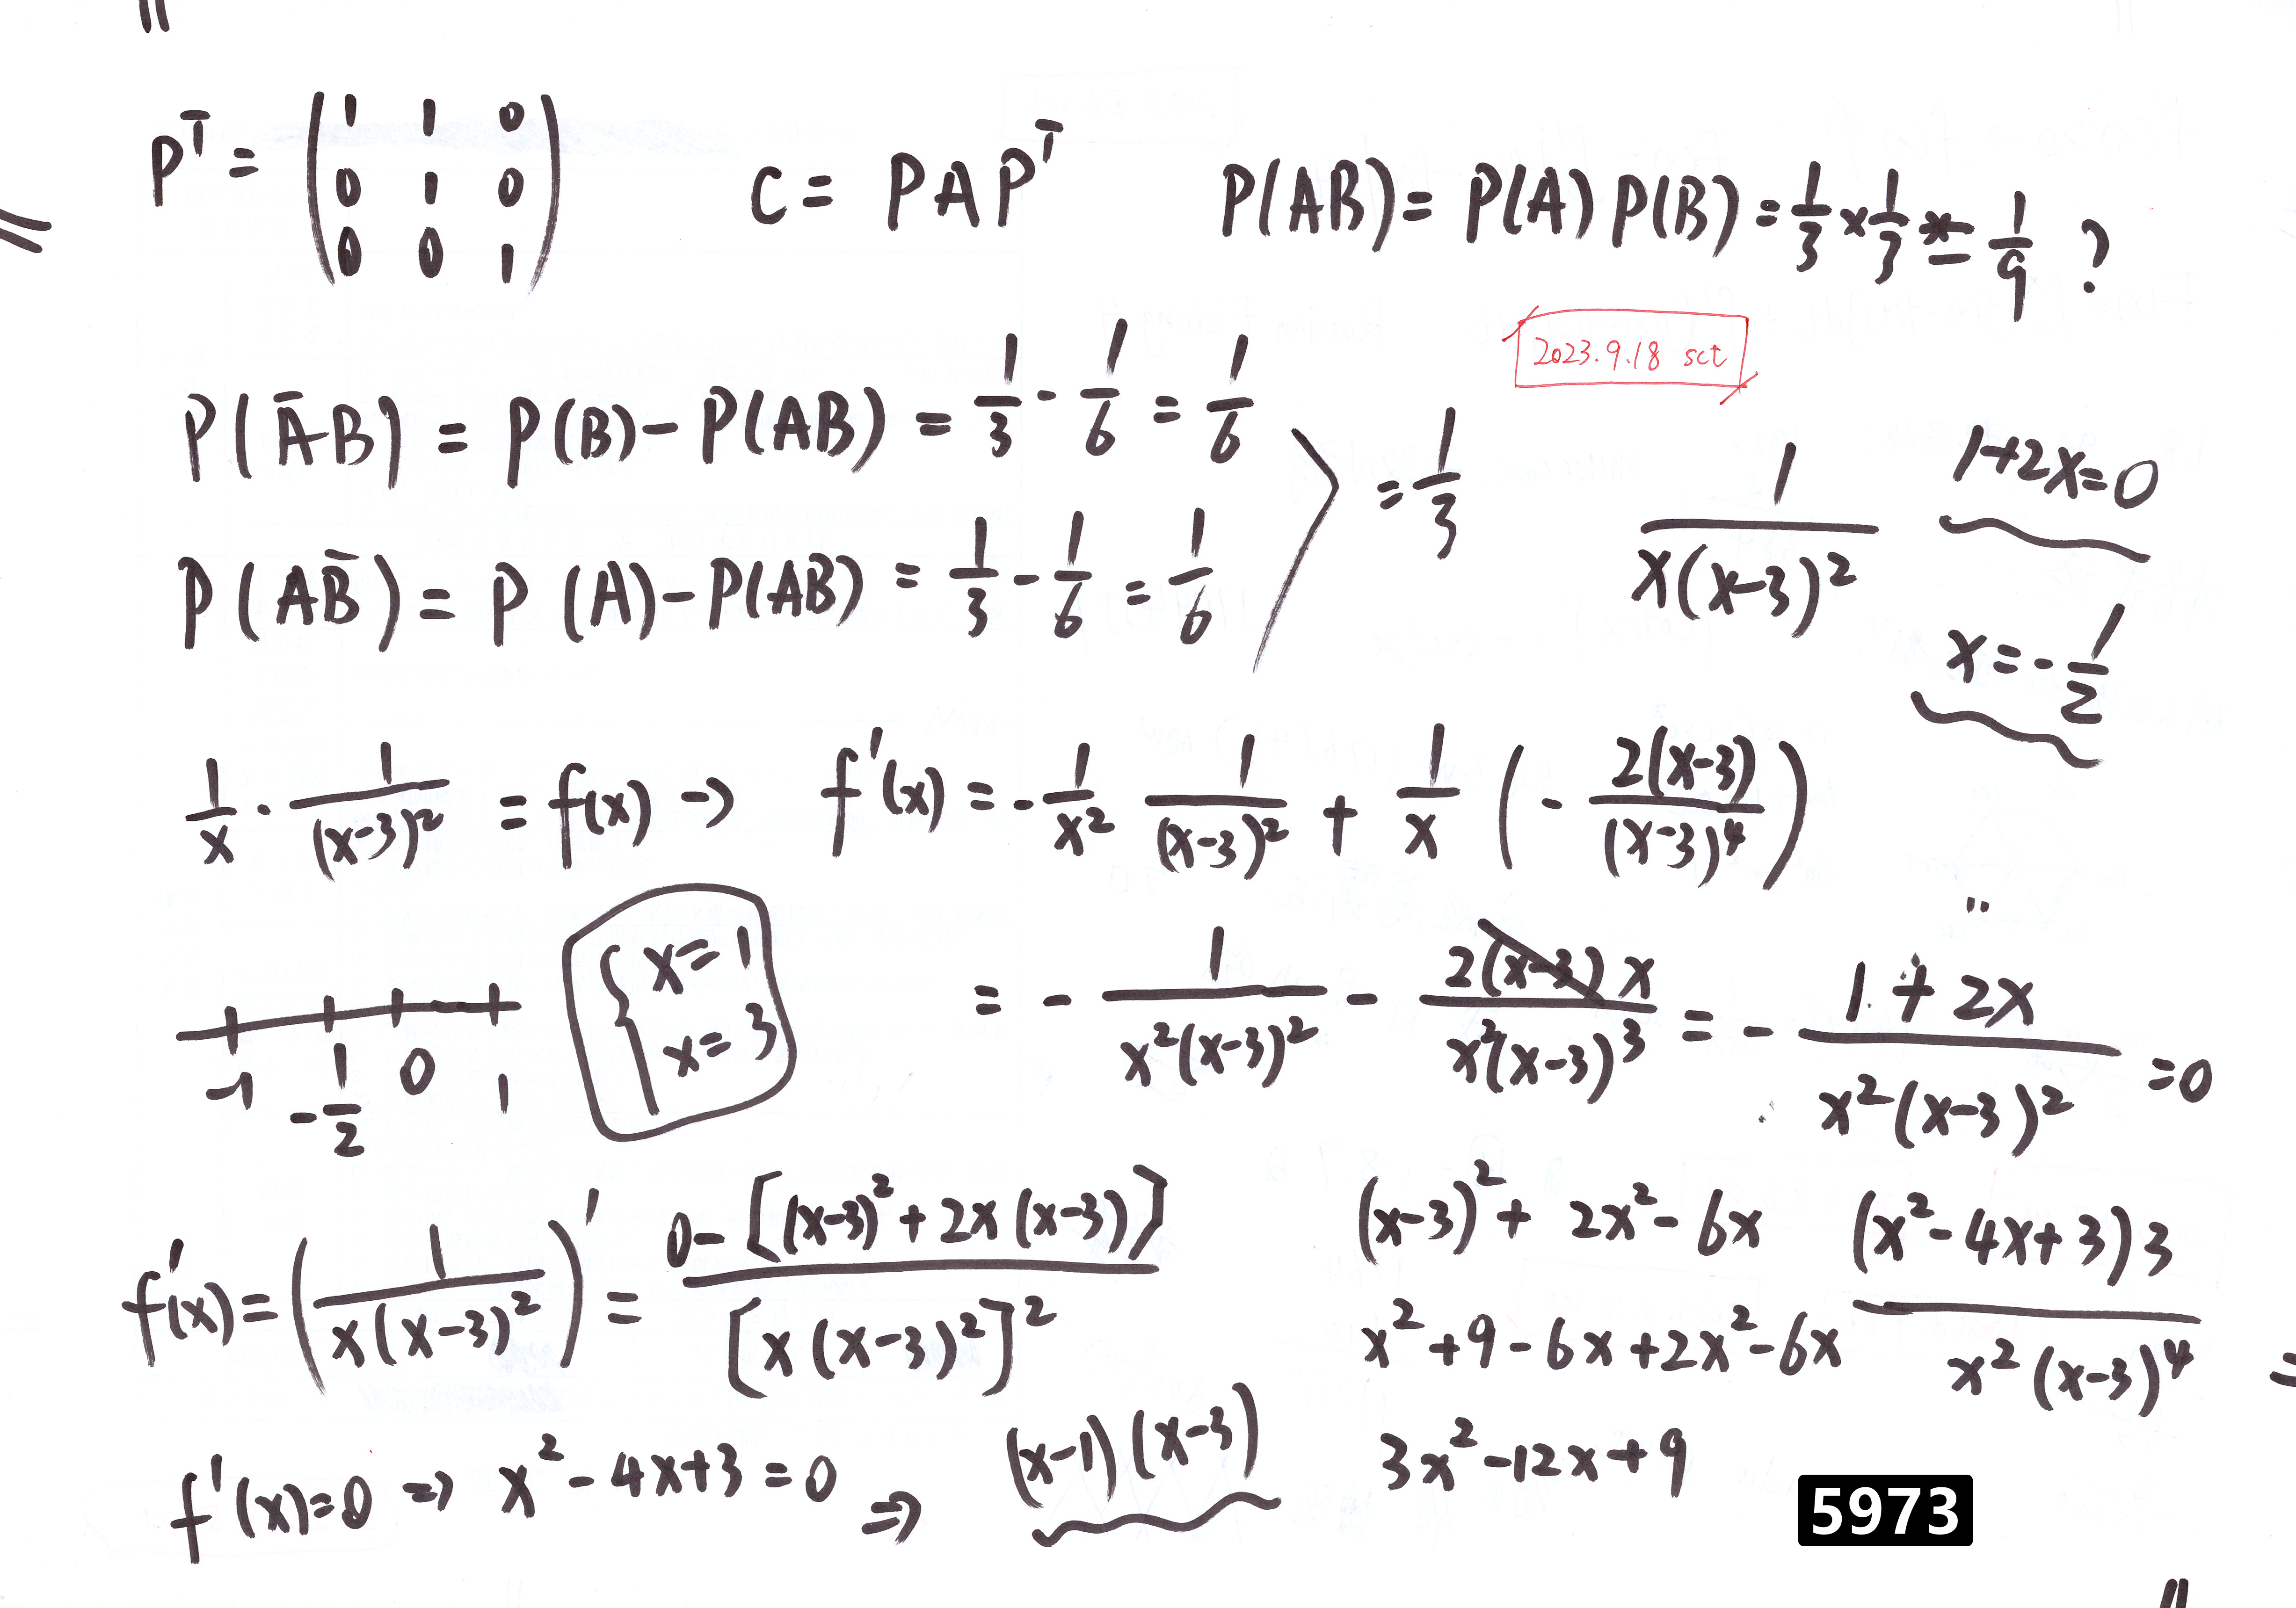 P^T = (1 1 0
0 1 0
0 0 1)
C = PAP^T
P(AB) = P(A)P(B) = 1/3 × 1/3 = 1/9 ?
2023.9.18 sct
P(A̅B) = P(B) - P(AB) = 1/3 - 1/6 = 1/6
P(AB̅) = P(A) - P(AB) = 1/3 - 1/6 = 1/6
= 1/3
1/(x(x-3)²)
1+2x=0
x = -1/2
1/x · 1/(x-3)² = f(x) → f'(x) = -1/x² 1/(x-3)² + 1/x (-2(x-3)/(x-3)⁴)
-1 -1/2 0 1
{x=1
x=3
= - 1/(x²(x-3)²) - 2(x-3)x/(x²(x-3)³) = - (1+2x)/(x²(x-3)²) = 0
f'(x) = (1/(x(x-3)²))' = (0-[(x-3)²+2x(x-3)])/[x(x-3)²]²
(x-3)² + 2x² - 6x
x²+9-6x+2x²-6x
3x²-12x+9
(x²-4x+3)3/(x²(x-3)⁴) =
f'(x)=0 ⇒ x²-4x+3=0 ⇒ (x-1)(x-3)
5973